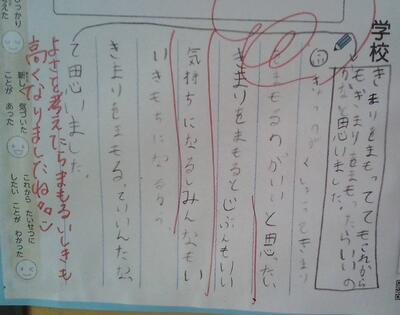 学校
きまりをまもっててもこれから
もきまりをまもったらいいの
かなと思いました。
まもるのがいいと思った。
きまりをまもるとじぶんもいい
気持ちになるしみんなもい
いきもちになるから
きまりをまもる、ていいんだな、
て思いました。
よさを考えたらまもるいしきも
高くなりましたね
新しく 気づいた
ことが あった
これから たいせつに
したい ことが わかった